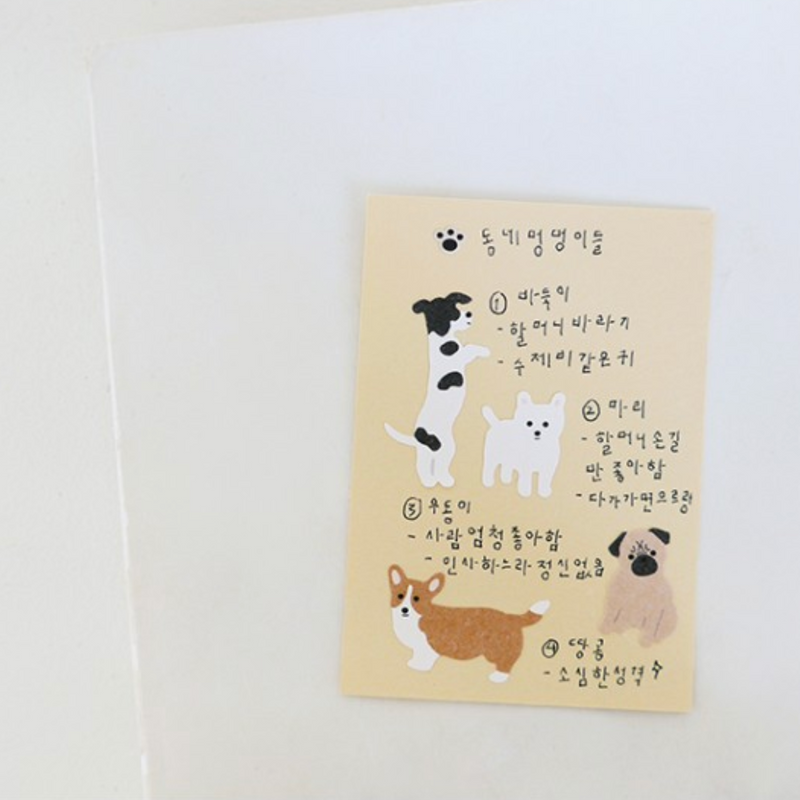 동네멍댕이들
① 바둑이
- 할머니 바라기
- 수제비같은귀
② 마리
- 할머니손길
만 좋아함
- 다가가면으르렁
③ 우동이
- 사람엄청좋아함
- 인사하느라정신없음
④ 땅콩
- 소심한성격